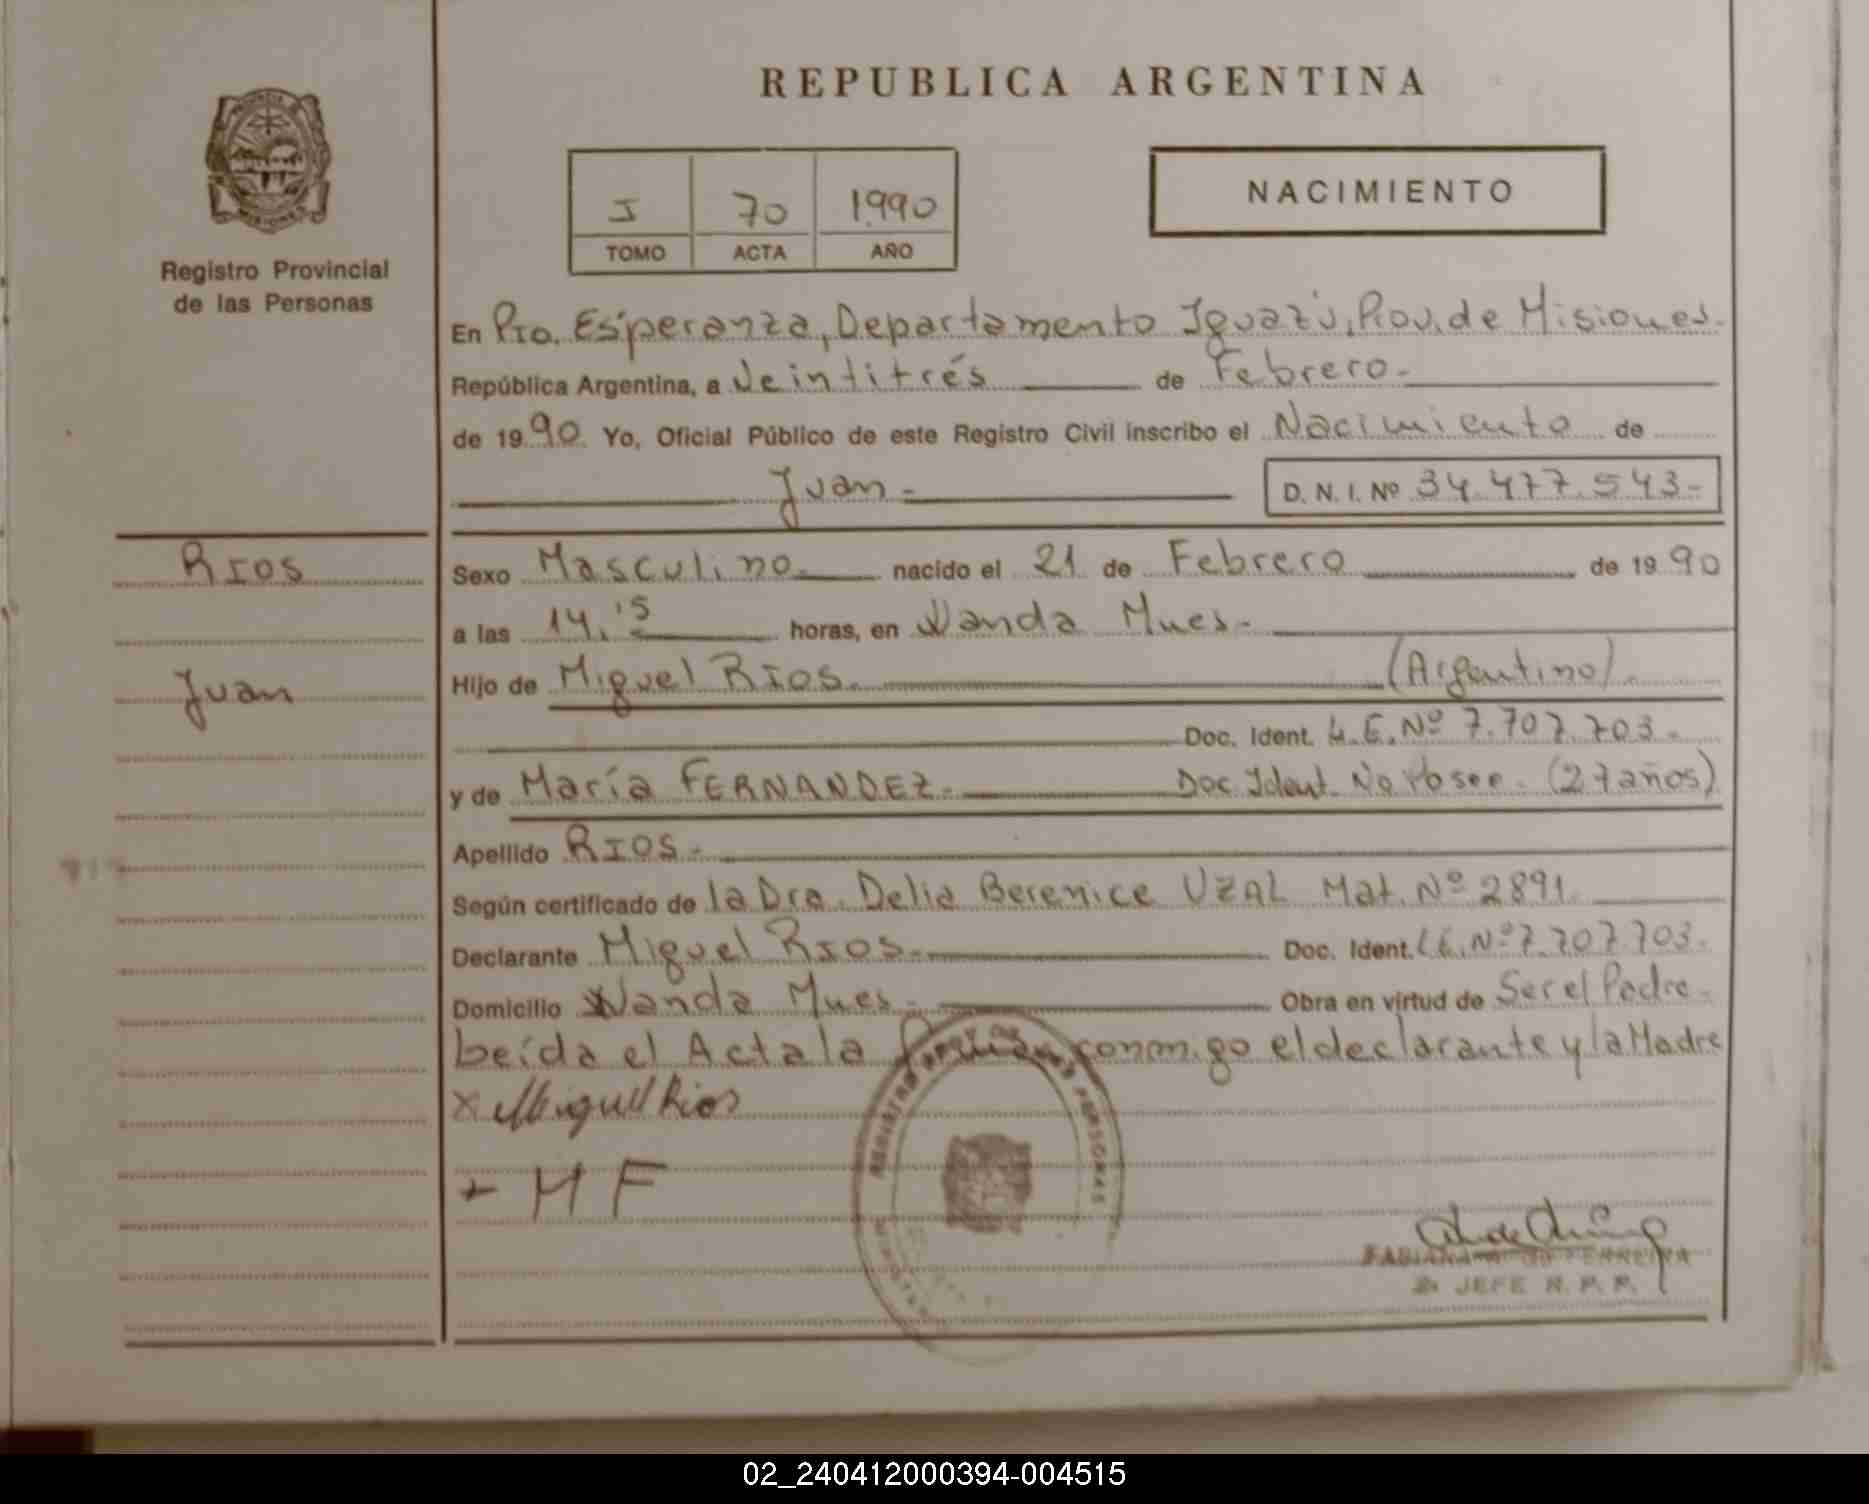 REPUBLICA ARGENTINA
PROVINCIA DE
MISIONES
Registro Provincial
de las Personas
NACIMIENTO
I 70 1990
TOMO ACTA AÑO
En Pto. Esperanza, Departamento Iguazú, Prov. de Misiones.
República Argentina, a Veintitrés de Febrero.
de 1990 Yo, Oficial Público de este Registro Civil inscribo el Nacimiento de
Juan. D. N. I. Nº 34.477.543.
RIOS
Juan
Sexo Masculino. nacido el 21 de Febrero de 1990
a las 14.15 horas, en Wanda Mnes.
Hijo de Miguel RIOS. (Argentino).
Doc. Ident. L.E. Nº 7.707.703.
y de María FERNANDEZ. Doc Ident. No Posee. (27 años)
Apellido RIOS.
Según certificado de la Dra. Delia Berenice UZAL Mat. Nº 2891.
Declarante Miguel RIOS. Doc. Ident. L.E. Nº 7.707.703.
Domicilio Wanda Mnes. Obra en virtud de Ser el Padre.
Leída el Acta la conmigo el declarante y la Madre
x Miguel Rios
+ M F
REGISTRO PERSONAS
FABIANA FERREIRA
JEFE R. P. P.
02_240412000394-004515